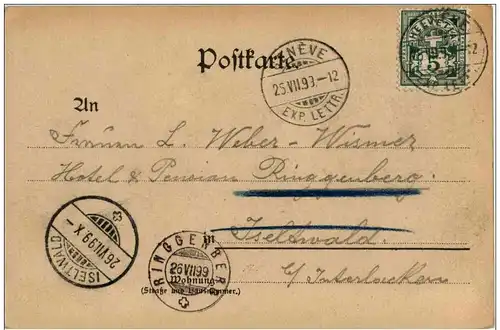 HELVETIA
5
Postkarte.
GENÈVE
25.VII.99.-12
EXP. LETTR.
An
Frauen L. Weber-Wismer
Hotel & Pension Ringgenberg.
in Iseltwald.
b/ Interlaken
ISELTWALD
26 VII 99 - X
RINGGENBERG
26 VII 99
Wohnung
(Straße und Hausnummer.)